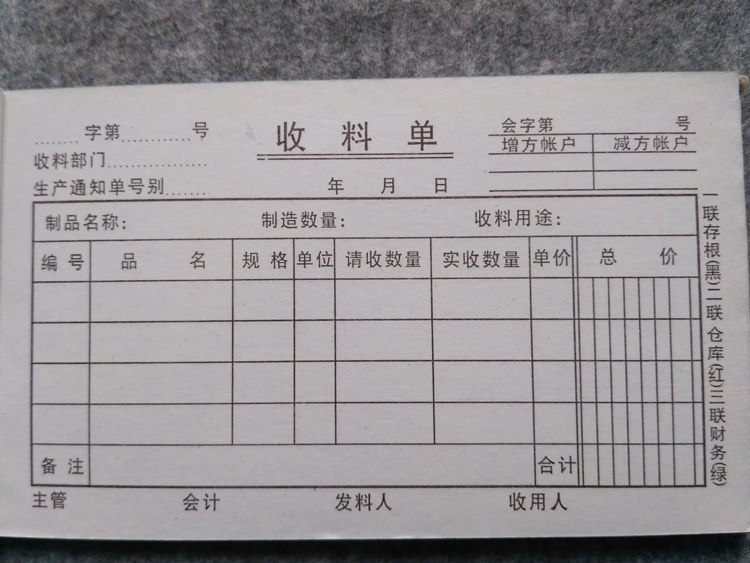 字第 号
收料部门
生产通知单号别
收料单
年 月 日
会字第 号
增方帐户 减方帐户
制品名称: 制造数量: 收料用途:
编号 品名 规格 单位 请收数量 实收数量 单价 总价
备注 合计
主管 会计 发料人 收用人
一联存根(黑)二联仓库(红)三联财务(绿)